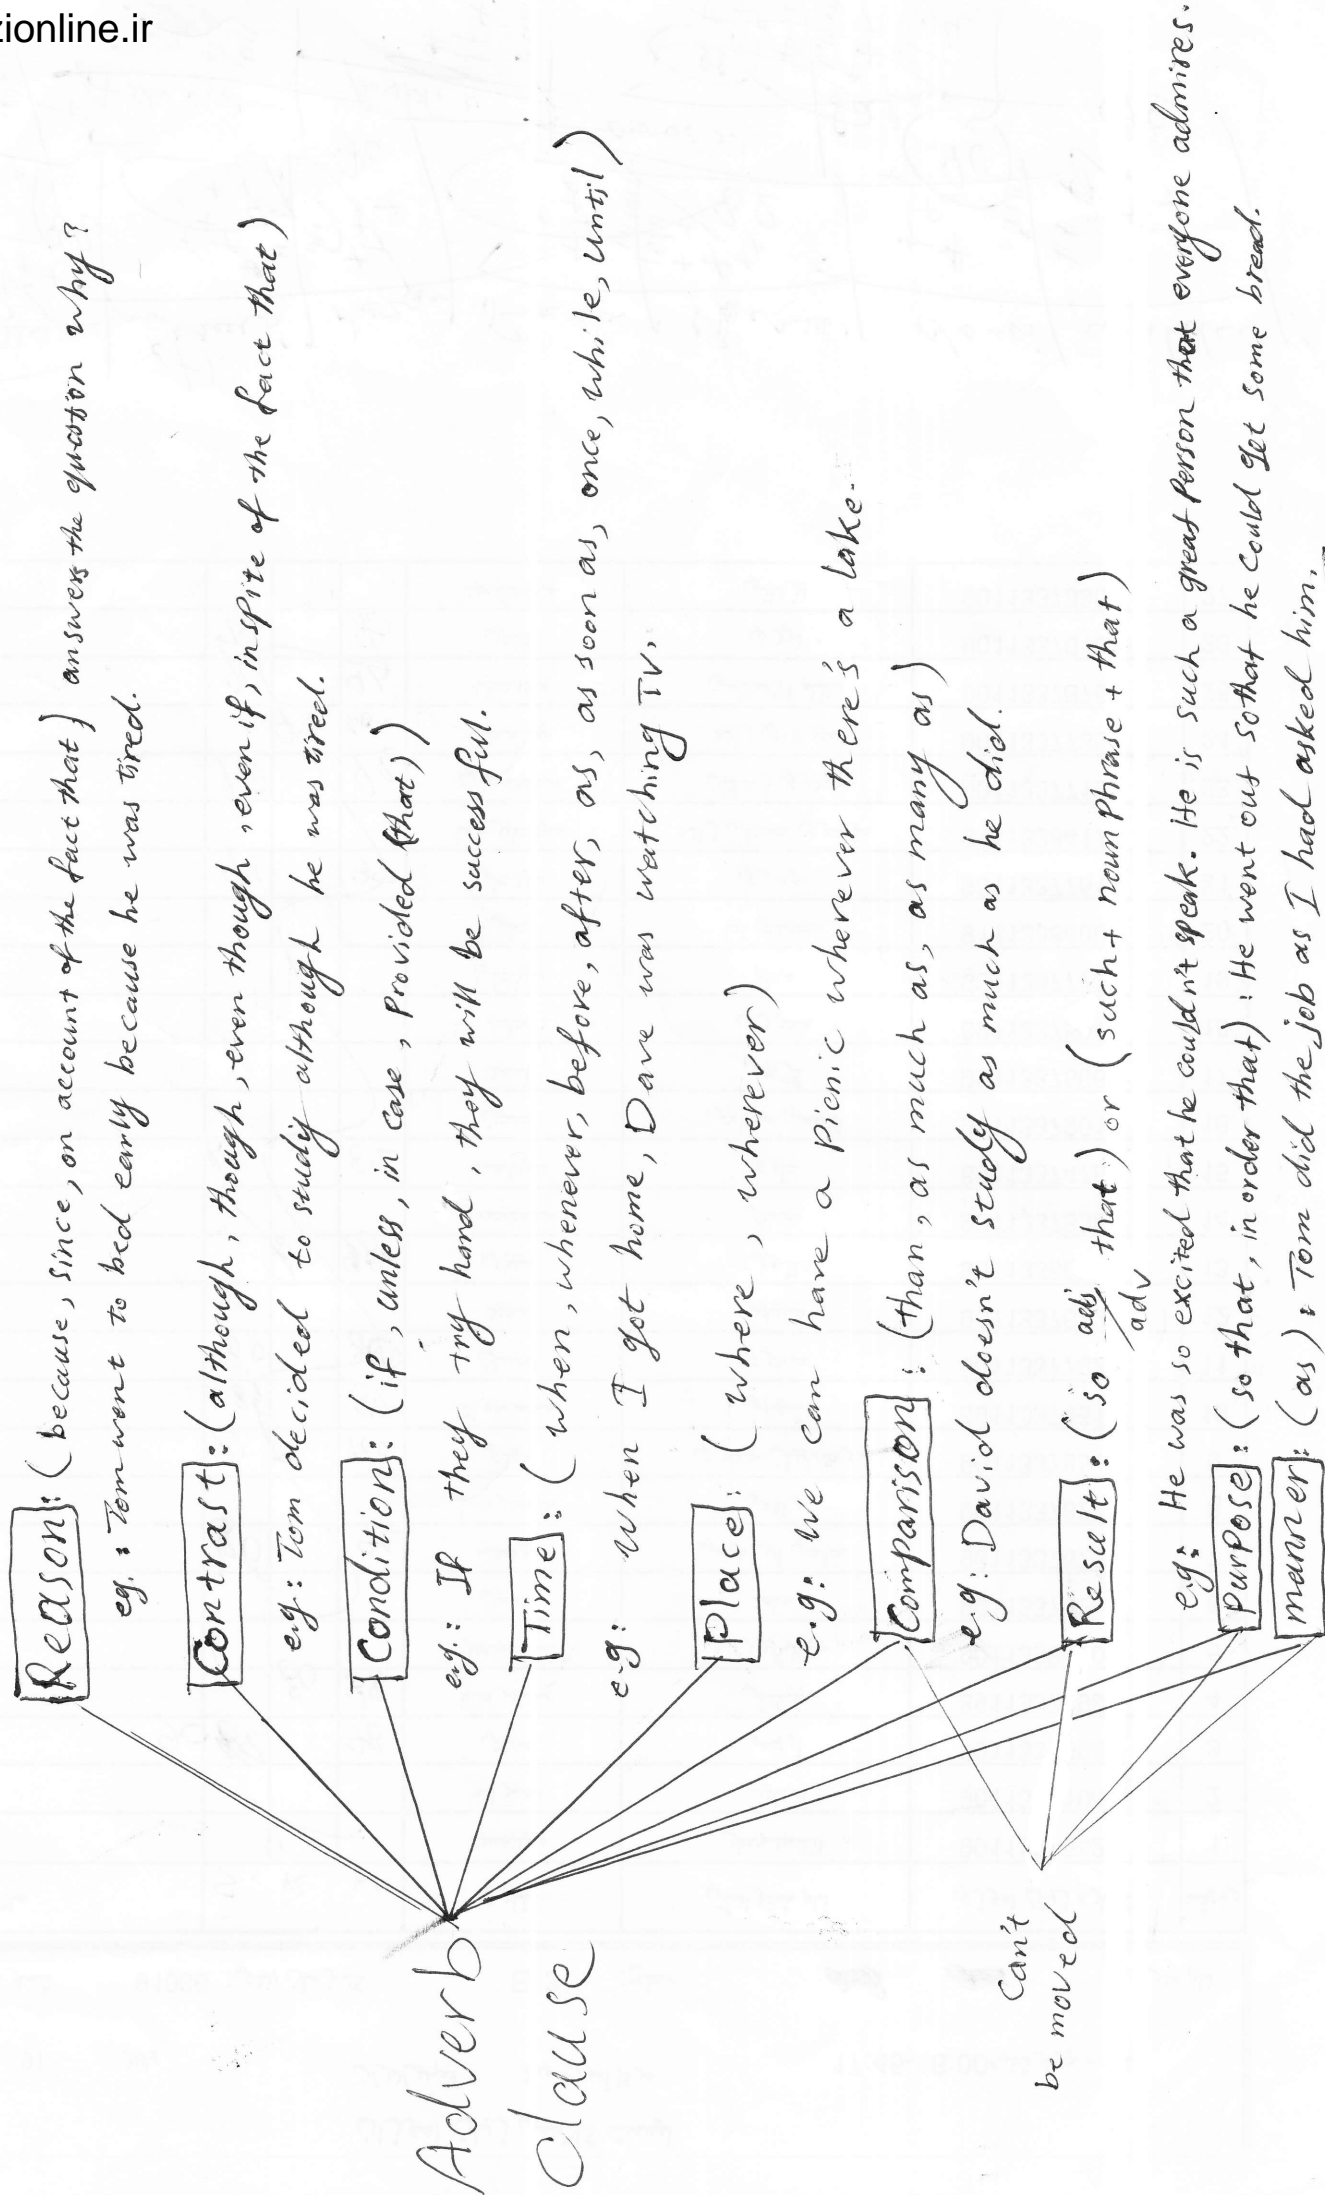 zionline.ir
Adverb
Clause
Reason: (because, since, on account of the fact that) answers the question why?
eg.: Tom went to bed early because he was tired.
Contrast: (although, though, even though, even if, inspite of the fact that)
e.g: Tom decided to study although he was tired.
Condition: (if, unless, in case, Provided (that))
e.g.: If they try hard, they will be successful.
Time: (when, whenever, before, after, as, as soon as, once, while, until)
e.g: When I got home, Dave was watching TV.
Place: (where, wherever)
e.g: We can have a Picnic wherever there's a lake.
Comparison: (than, as much as, as many as)
e.g: David doesn't study as much as he did.
Result: (so adj/adv that) or (such + noun phrase + that)
e.g: He was so excited that he couldn't speak. He is such a great Person that everyone admires.
Purpose: (so that, in order that): He went out so that he could get some bread.
manner: (as): Tom did the job as I had asked him.
Can't
be moved